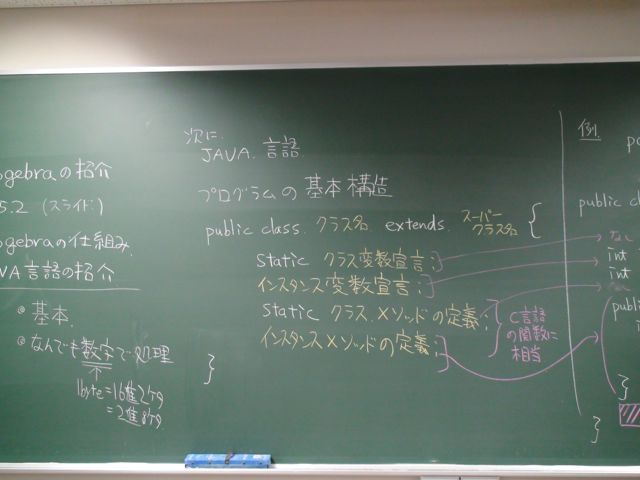 gebraの紹介
5.2 (スライド:)
gebraの仕組み.
VA言語の紹介.
基本.
なんでも数字で処理
1byte=16進2ケタ
=2進8ケタ
次に.
JAVA. 言語
プログラムの 基本構造
public class. クラス名 extends. スーパークラス名 {
static クラス変数宣言;
インスタンス変数宣言;
static クラス.メソッドの定義;
インスタンスメソッドの定義;
}
C言語
の関数に
相当.
例.
public cl
なし
int
int
publi
}
}